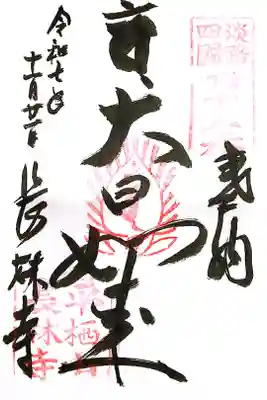 奉納
淡路
四国
大日如来
平栖山
長林寺
令和七年
十一月廿一日
長林寺